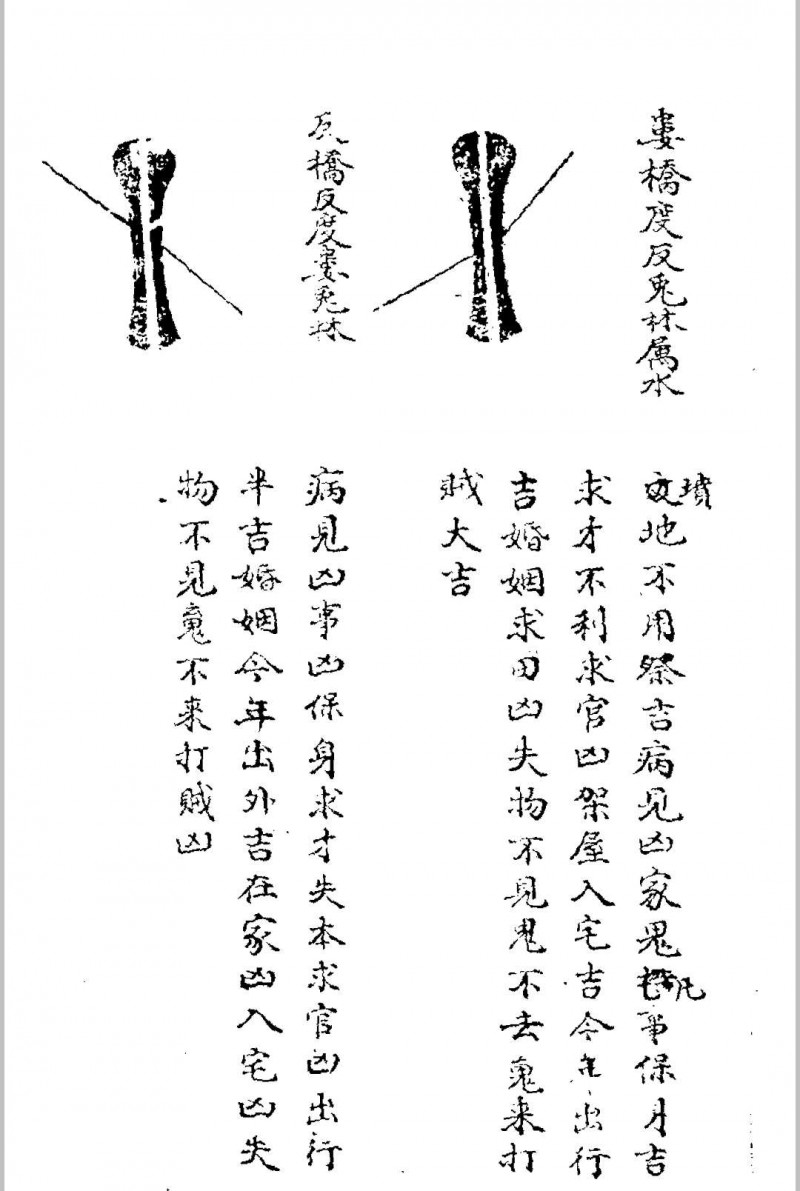 婁橋度反兎林属水
墳地不用祭吉病見凶家鬼凡事保月吉
求才不利求官凶架屋入宅吉今年出行
吉婚姻求田凶失物不見鬼不去鬼来打
贼大吉
反橋反度婁兎林
病見凶事凶保身求才失本求官凶出行
半吉婚姻今年出外吉在家凶入宅凶失
物不見鬼不来打贼凶